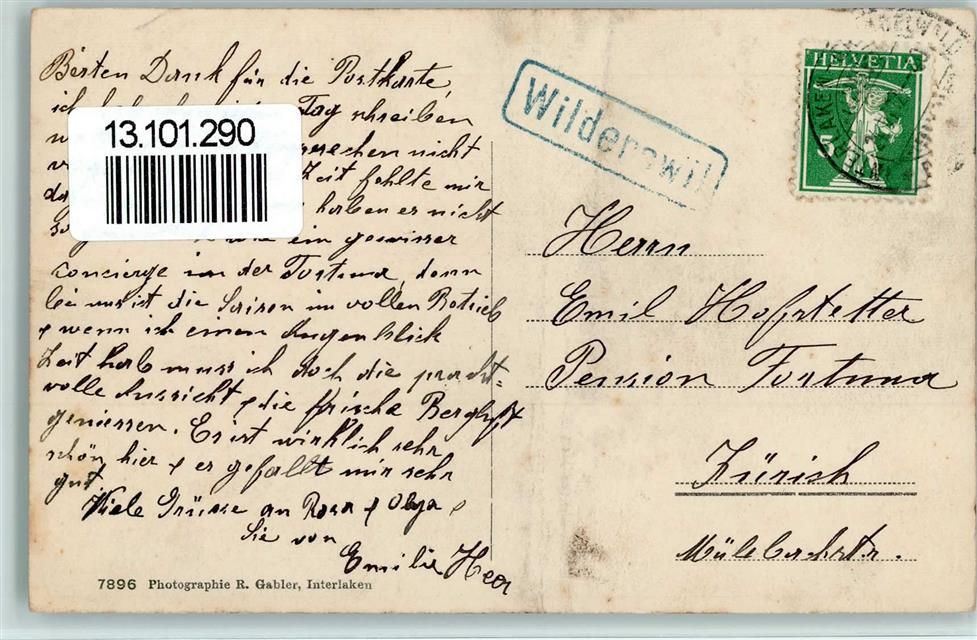 Besten Dank für die Postkarte,
ich Tag schreiben
sprechen nicht
Zeit fehlte mir
haben es nicht
ein gewisser
Concierge in der Fortuna, denn
bei uns ist die Saison im vollen Betrieb
& wenn ich einen Augenblick
Zeit hab muss ich doch die pracht-
volle Aussicht & die frische Bergluft
geniessen. Es ist wirklich sehr
schön hier & es gefällt mir sehr
gut.
Viele Grüsse an Rosa & Olga &
Sie von
Emilie Heer
7896 Photographie R. Gabler, Interlaken
13.101.290
Wilderswil
HELVETIA
5
Herrn
Emil Hofstetter
Pension Fortuna
Zürich
Mülebachstr.